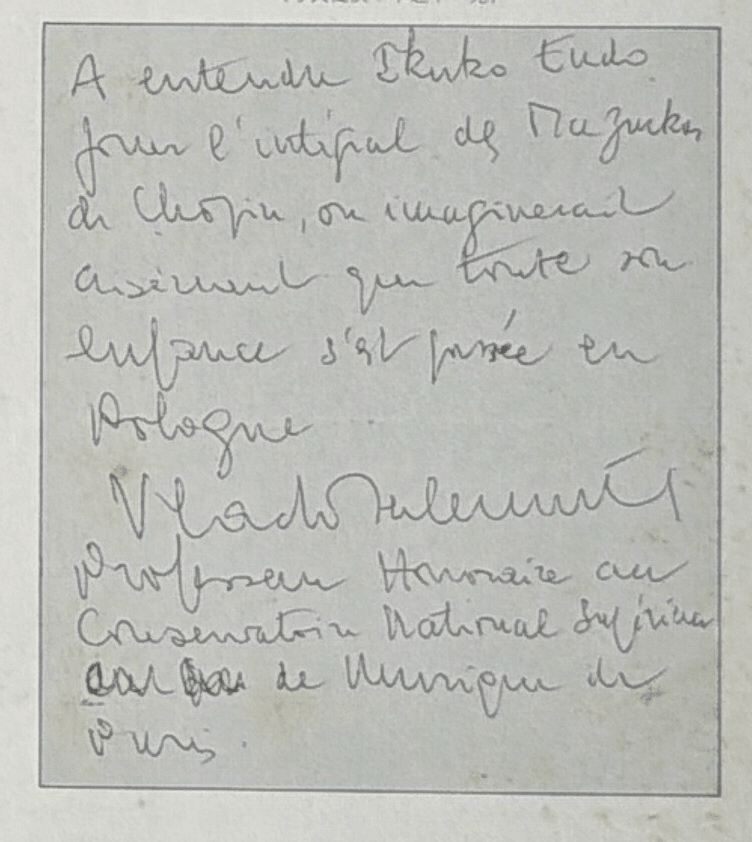 A entendre Ikuko Endo
jouer l'intégral des Mazurkas
de Chopin, on imaginerait
aisément que toute son
enfance s'est passée en
Pologne
Vlado Perlemuter
Professeur Honoraire au
Conservatoire National Supérieur
de Musique de
Paris.